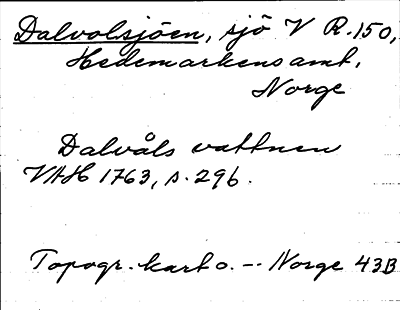 Dalvolsjöen, sjö V R.150,
Hedemarkens amt,
Norge
Dalvåls vattnen
VAH 1763, s. 296.
Topogr. karto. -- Norge 43B